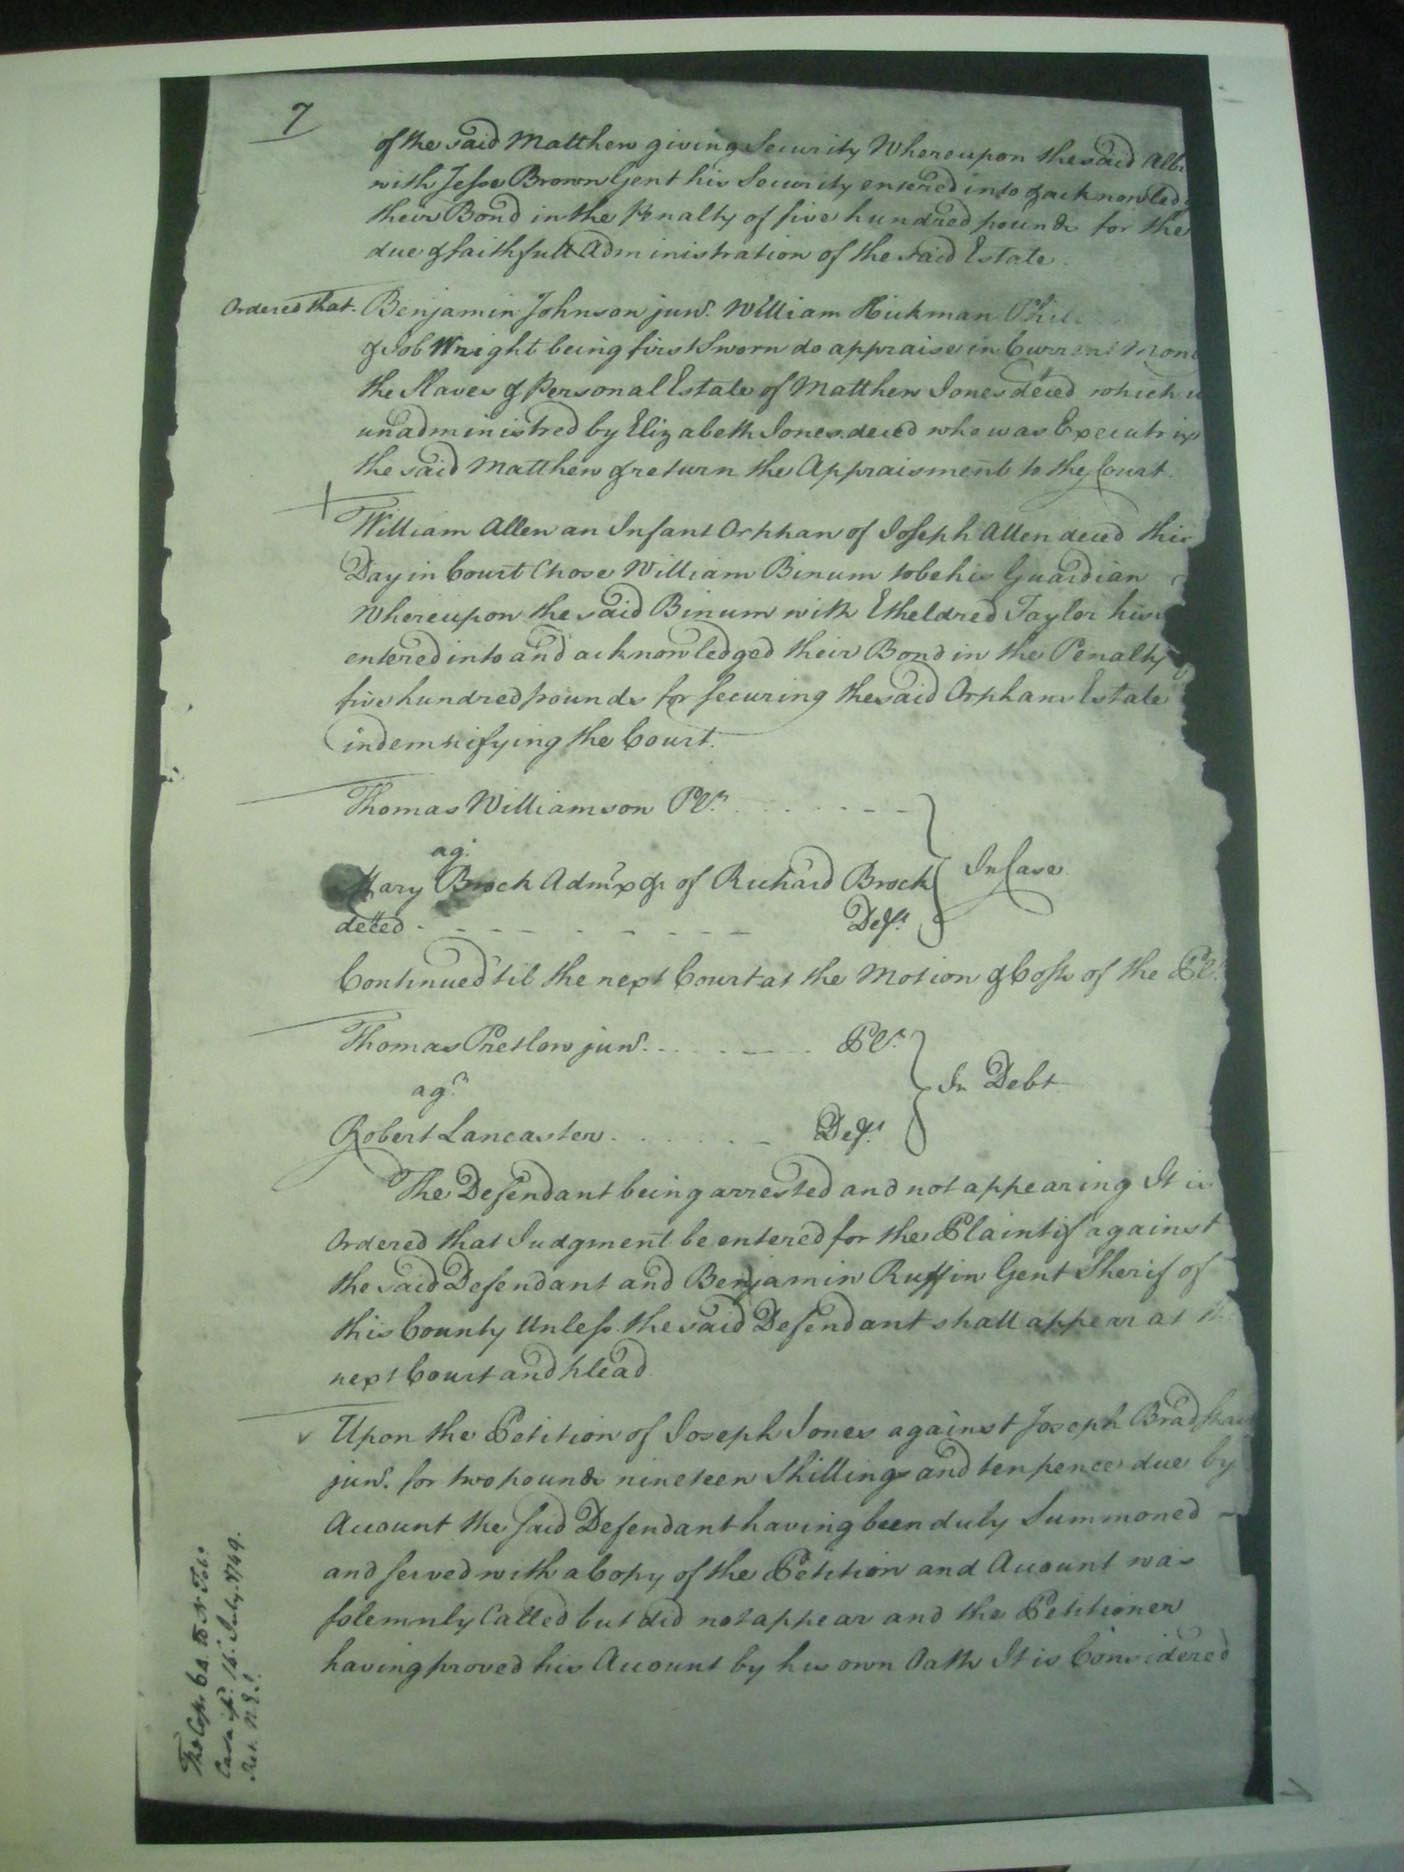 7
of the said Matthew giving Security Whereupon the said Alb
with Jesse Brown Gent his Security entered into & acknowled
their Bond in the Penalty of five hundred pounds for the
due & faithfull Administration of the said Estate.
Ordered that Benjamin Johnson junr. William Hickman Phil
& Job Wright being first Sworn do appraise in Current Mon
the Slaves & Personal Estate of Matthew Jones deced which
unadministred by Elizabeth Jones deced who was Executrix
the said Matthew & return the Appraisment to the Court.
William Allen an Infant Orphan of Joseph Allen deced this
Day in Court Chose William Binum to be his Guardian
Whereupon the said Binum with Etheldred Taylor his
entered into and acknowledged their Bond in the Penalty
five hundred pounds for securing the said Orphans Estate
indemnifying the Court.
Thomas Williamson Plt.
agt.
Mary Brock Admrx &c of Richard Brock
deced Deft.
In Case
Continued til the next Court at the Motion & Costs of the Plt.
Thomas Pretlow junr. Plt.
agt.
In Debt
Robert Lancaster Deft.
The Defendant being arrested and not appearing It is
Ordered that Judgment be entered for the Plaintif against
the said Defendant and Benjamin Ruffin Gent Sherif of
this County Unless the said Defendant shall appear at th
next Court and plead
Upon the Petition of Joseph Jones against Joseph Bradshaw
junr. for two pounds nineteen Shillings and ten pence due by
Account the said Defendant having been duly Summoned
and served with a Copy of the Petition and Account was
solemnly Called but did not appear and the Petitioner
having proved his Account by his own Oath It is Considered
Casa 16. July 1749.